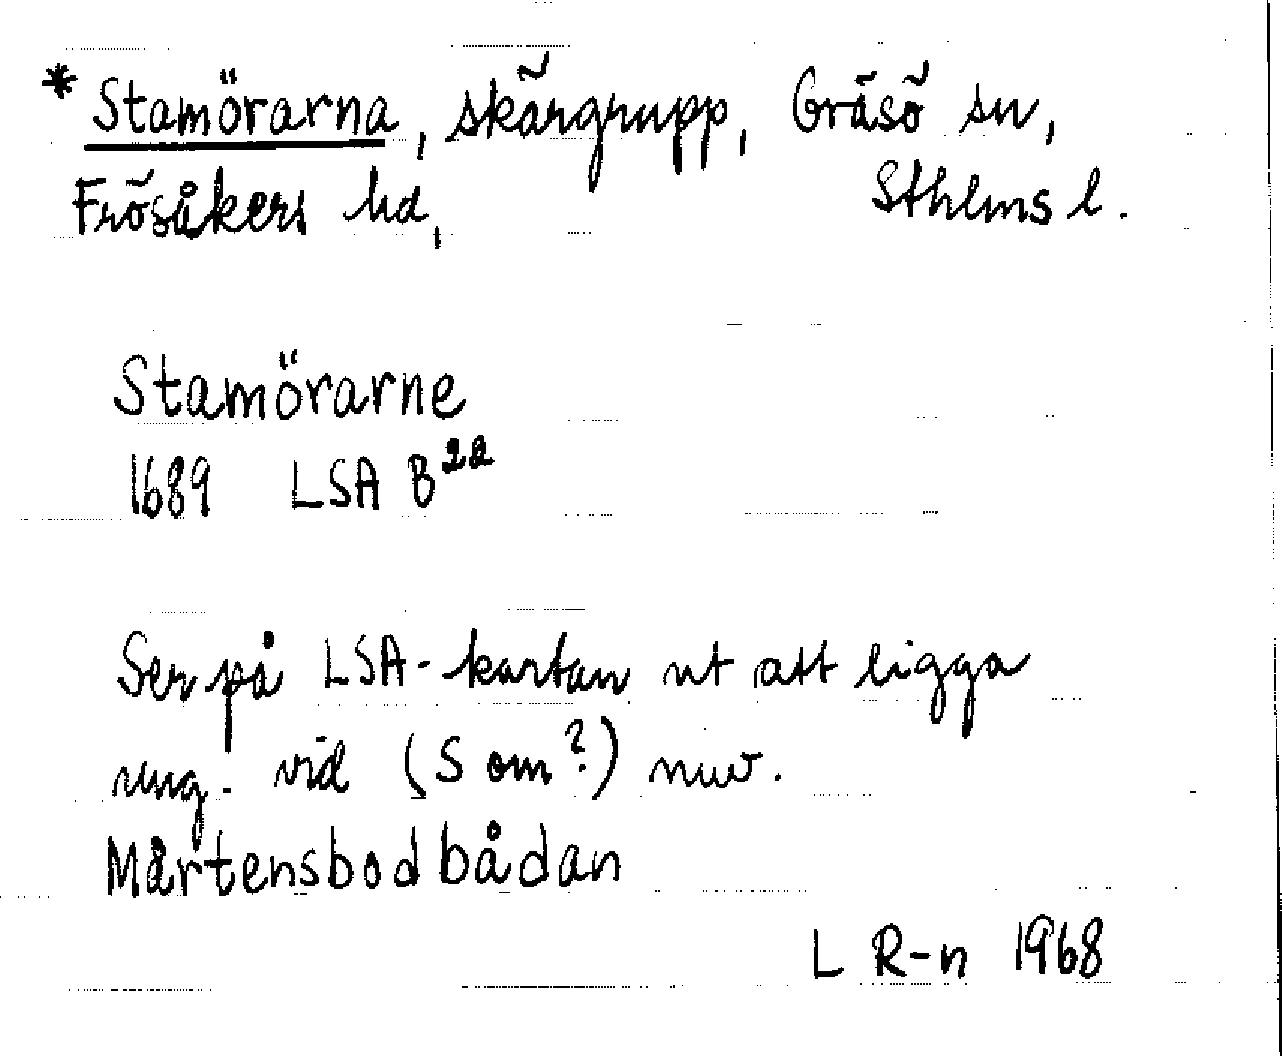 * Stamörarna, skärgrupp, Gräsö sn,
Frösåkers hd, Sthlms l.
Stamörarne
1689 LSA B22
Ser på LSA-kartan ut att ligga
ung. vid (S om?) nuv.
Mårtensbodbådan
L R-n 1968